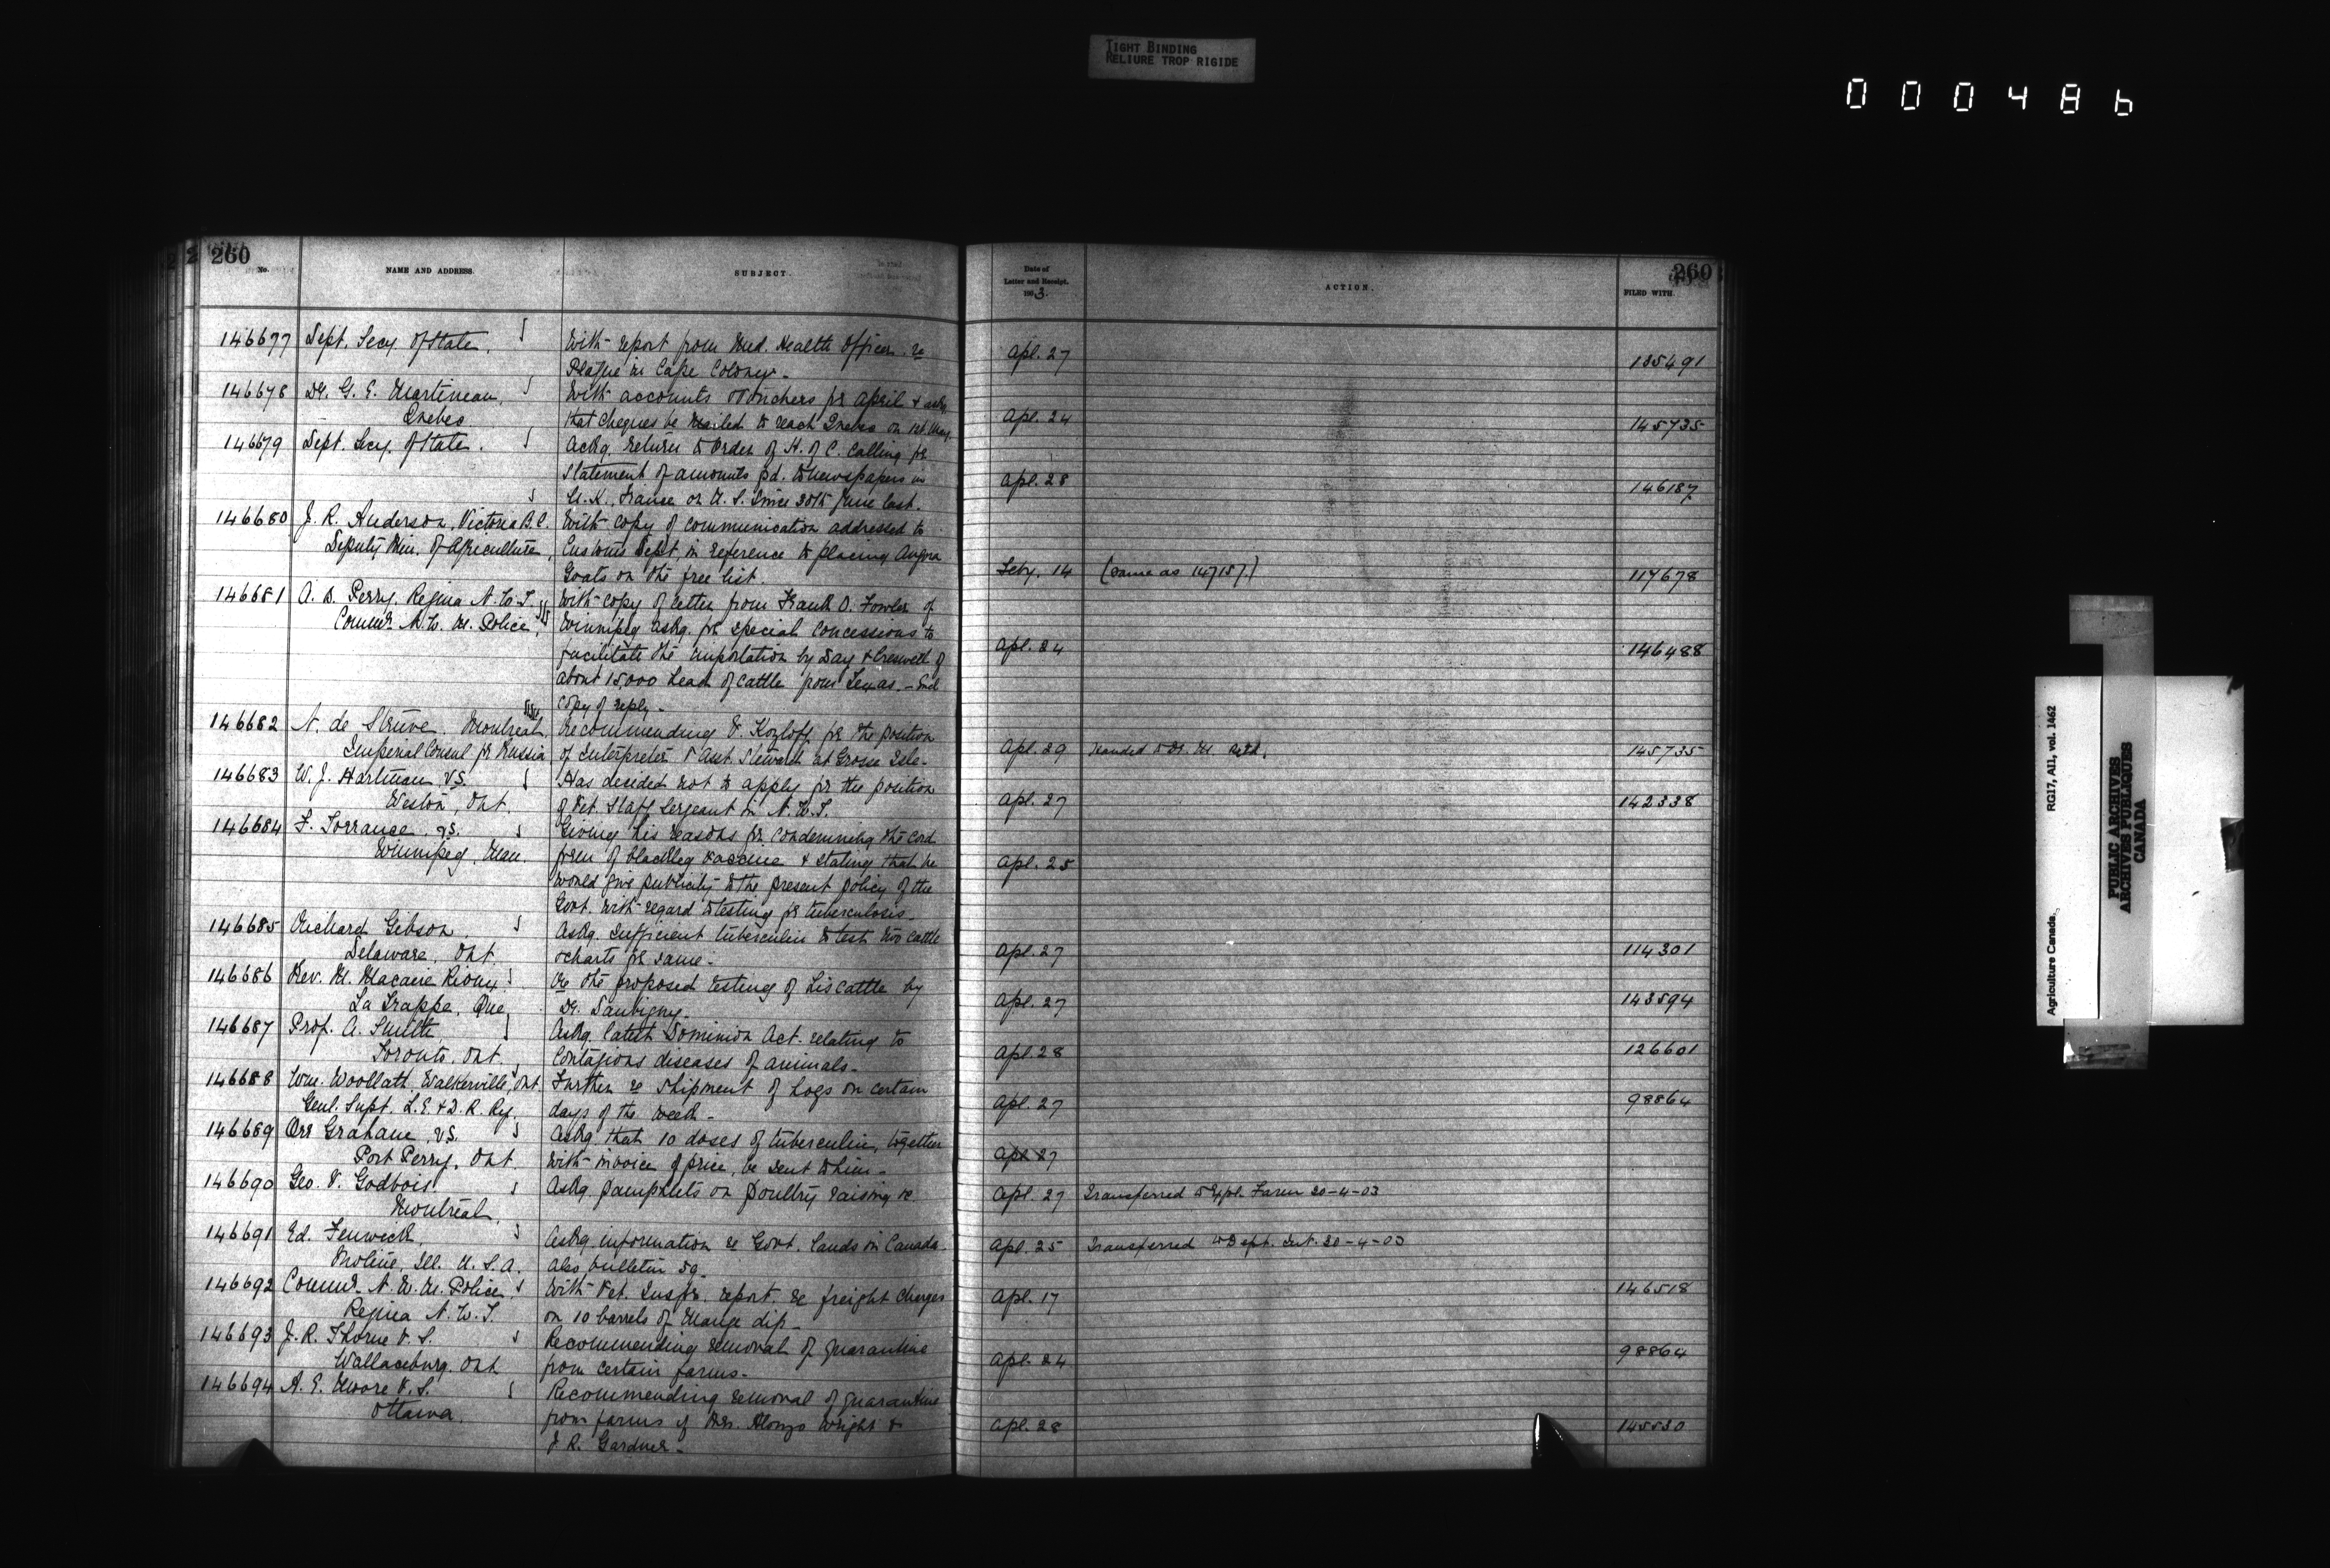 TIGHT BINDING
RELIURE TROP RIGIDE
000486
260
No.
NAME AND ADDRESS.
SUBJECT.
146677 Dept. Secy. of State. With report from Med. Health Officer re
Plague in Cape Colony.
146678 Dr. G. E. Martineau, With accounts & vouchers for April & askg
Quebec that cheques be mailed to reach Quebec on 1st May.
146679 Dept. Secy. of State. Askg. return to Order of H. of C. calling for
statement of amounts pd. to newspapers in
U.K., France or U.S. since 30th June last.
146680 J. R. Anderson, Victoria B.C. With copy of communication addressed to
Deputy Min. of Agriculture, Customs Dept. in reference to placing Angora
Goats on the free list.
146681 A. B. Perry, Regina N.W.T. With copy of letter from Frank O. Fowler of
Commr. N.W.M. Police, Winnipeg askg. for special concessions to
facilitate the importation by Day & Creswell of
about 15,000 head of cattle from Texas. — Encl
copy of reply.
146682 N. de Struve, Montreal, Recommending V. Kozloff for the position
Imperial Consul for Russia of interpreter & Asst. Steward at Grosse Isle.
146683 W. J. Hartman V.S. Has decided not to apply for the position
Weston, Ont. of Vet. Staff Sergeant in N.W.T.
146684 F. Torrance, V.S. Giving his reasons for condemning the cord
Winnipeg, Man. form of blackleg vaccine & stating that he
would give publicity to the present policy of the
Govt. with regard to testing for tuberculosis.
146685 Richard Gibson, Askg. sufficient tuberculin to test two cattle
Delaware, Ont. & charts for same.
146686 Rev. M. Macaire Rioux Re the proposed testing of his cattle by
La Trappe, Que. Dr. Daubigny.
146687 Prof. A. Smith, Askg. latest Dominion Act. relating to
Toronto, Ont. Contagious diseases of animals.
146688 Wm. Woollatt, Walkerville, Ont Further re shipment of hogs on certain
Genl. Supt. L.E. & D.R. Ry. days of the week.
146689 Orr Graham, V.S. Askg. that 10 doses of tuberculin, together
Port Perry, Ont. with invoice of price, be sent to him.
146690 Geo. V. Godbois Askg. pamphlets on poultry raising &c
Montreal.
146691 Ed. Fenwick, Askg. information re Govt. lands in Canada.
Moline, Ill. U.S.A. also bulletin 59.
146692 Commr. N.W.M. Police, With Vet. Inspr. report, re freight charges
Regina N.W.T. on 10 barrels of Mange dip.
146693 J. R. Thorne V.S. Recommending removal of quarantine
Wallaceburg, Ont. from certain farms.
146694 A. E. Moore V.S. Recommending removal of quarantine
Ottawa. from farms of Mrs. Alonzo Wright &
J. R. Gardner.
260
Date of
Letter and Receipt.
1903.
ACTION.
FILED WITH.
Apl. 27 135491
Apl. 24 145735
Apl. 28 146187
Feby. 14 (Same as 147157.) 117678
Apl. 24 146488
Apl. 29 Handed to 145735
Apl. 27 142338
Apl. 25
Apl. 27 114301
Apl. 27 143594
Apl. 28 126601
Apl. 27 98864
Apl. 27
Apl. 27 Transferred to Expl. Farm 30-4-03
Apl. 25 Transferred to Dept. Int. 30-4-03
Apl. 17 146518
Apl. 24 98864
Apl. 28 145530
Agriculture Canada.
RG17, AII, vol. 1462
PUBLIC ARCHIVES
ARCHIVES PUBLIQUES
CANADA